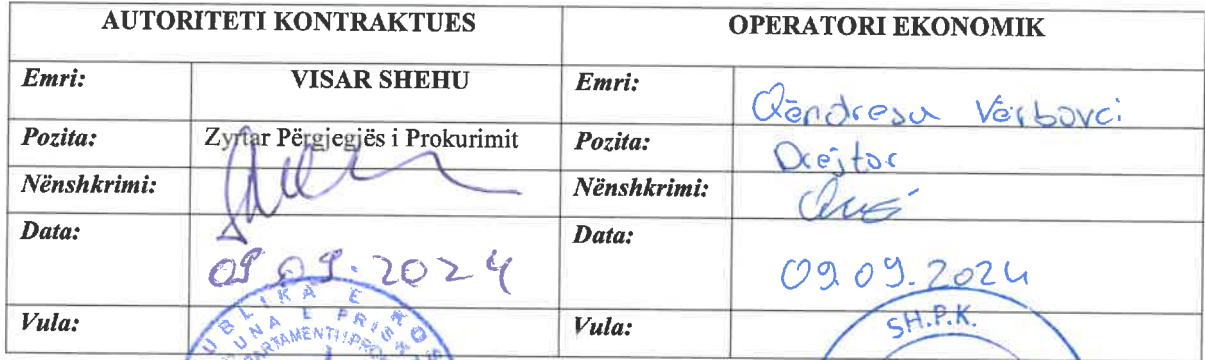 AUTORITETI KONTRAKTUES OPERATORI EKONOMIK
Emri: VISAR SHEHU Emri: Qëndresa Vërbovci
Pozita: Zyrtar Përgjegjës i Prokurimit Pozita: Drejtor
Nënshkrimi: Nënshkrimi:
Data: 09.09.2024 Data: 09.09.2024
Vula: Vula: SH.P.K.